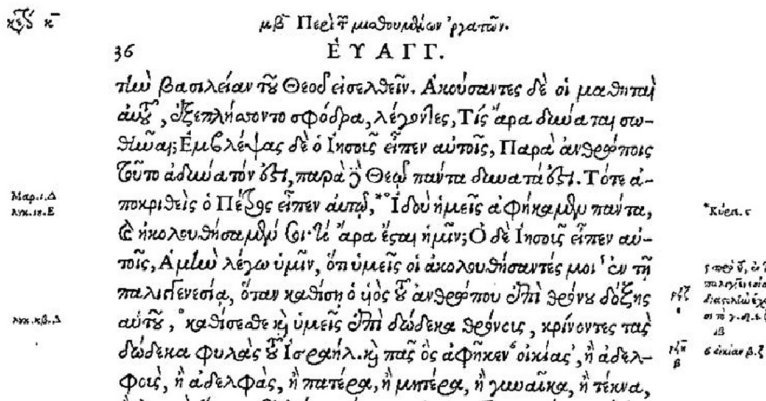 μβ Περὶ τ μισθουμένων ἐργατῶν.
36 ΕΥΑΓΓ.
τὴν βασιλείαν τοῦ Θεοῦ εἰσελθεῖν. Ακούσαντες δὲ οἱ μαθηταὶ
αὐτοῦ, ἐξεπλήσσοντο σφόδρα, λέγοντες, Τίς ἄρα δύναται σω-
θῆναι; Εμβλέψας δὲ ὁ Ιησοῦς εἶπεν αὐτοῖς, Παρὰ ἀνθρώποις
τοῦτο ἀδύνατόν ἐστι, παρὰ δὲ Θεῷ πάντα δυνατά ἐστι. Τότε ἀ-
Μαρ.ι.Δ
ποκριθεὶς ὁ Πέτρος εἶπεν αὐτῷ, * Ἰδοὺ ἡμεῖς ἀφήκαμεν πάντα,
λυκ.ιη.Ε
καὶ ἠκολουθήσαμέν σοι· τί ἄρα ἔσται ἡμῖν; Ὁ δὲ Ιησοῦς εἶπεν αὐ-
τοῖς, Αμὴν λέγω ὑμῖν, ὅτι ὑμεῖς οἱ ἀκολουθήσαντές μοι ἐν τῇ
παλιγγενεσίᾳ, ὅταν καθίσῃ ὁ υἱὸς τοῦ ἀνθρώπου ἐπὶ θρόνου δόξης
λυκ.κβ.Δ
αὐτοῦ, καθίσεσθε καὶ ὑμεῖς ἐπὶ δώδεκα θρόνοις, κρίνοντες τὰς
δώδεκα φυλὰς τοῦ Ισραήλ. καὶ πᾶς ὃς ἀφῆκεν οἰκίας, ἢ ἀδελ-
φοὺς, ἢ ἀδελφὰς, ἢ πατέρα, ἢ μητέρα, ἢ γυναῖκα, ἢ τέκνα,